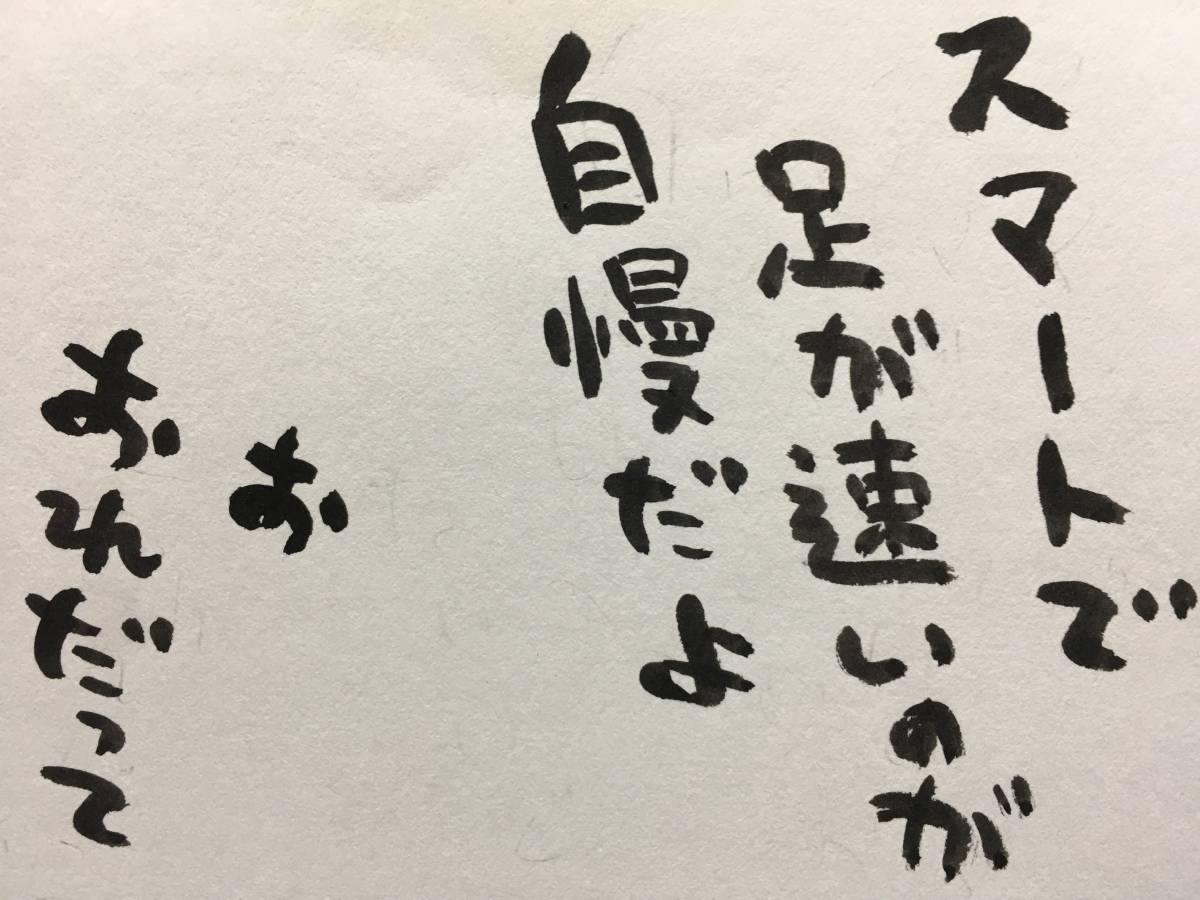 スマートで
足が速いのが
自慢だよ
お
おれだって